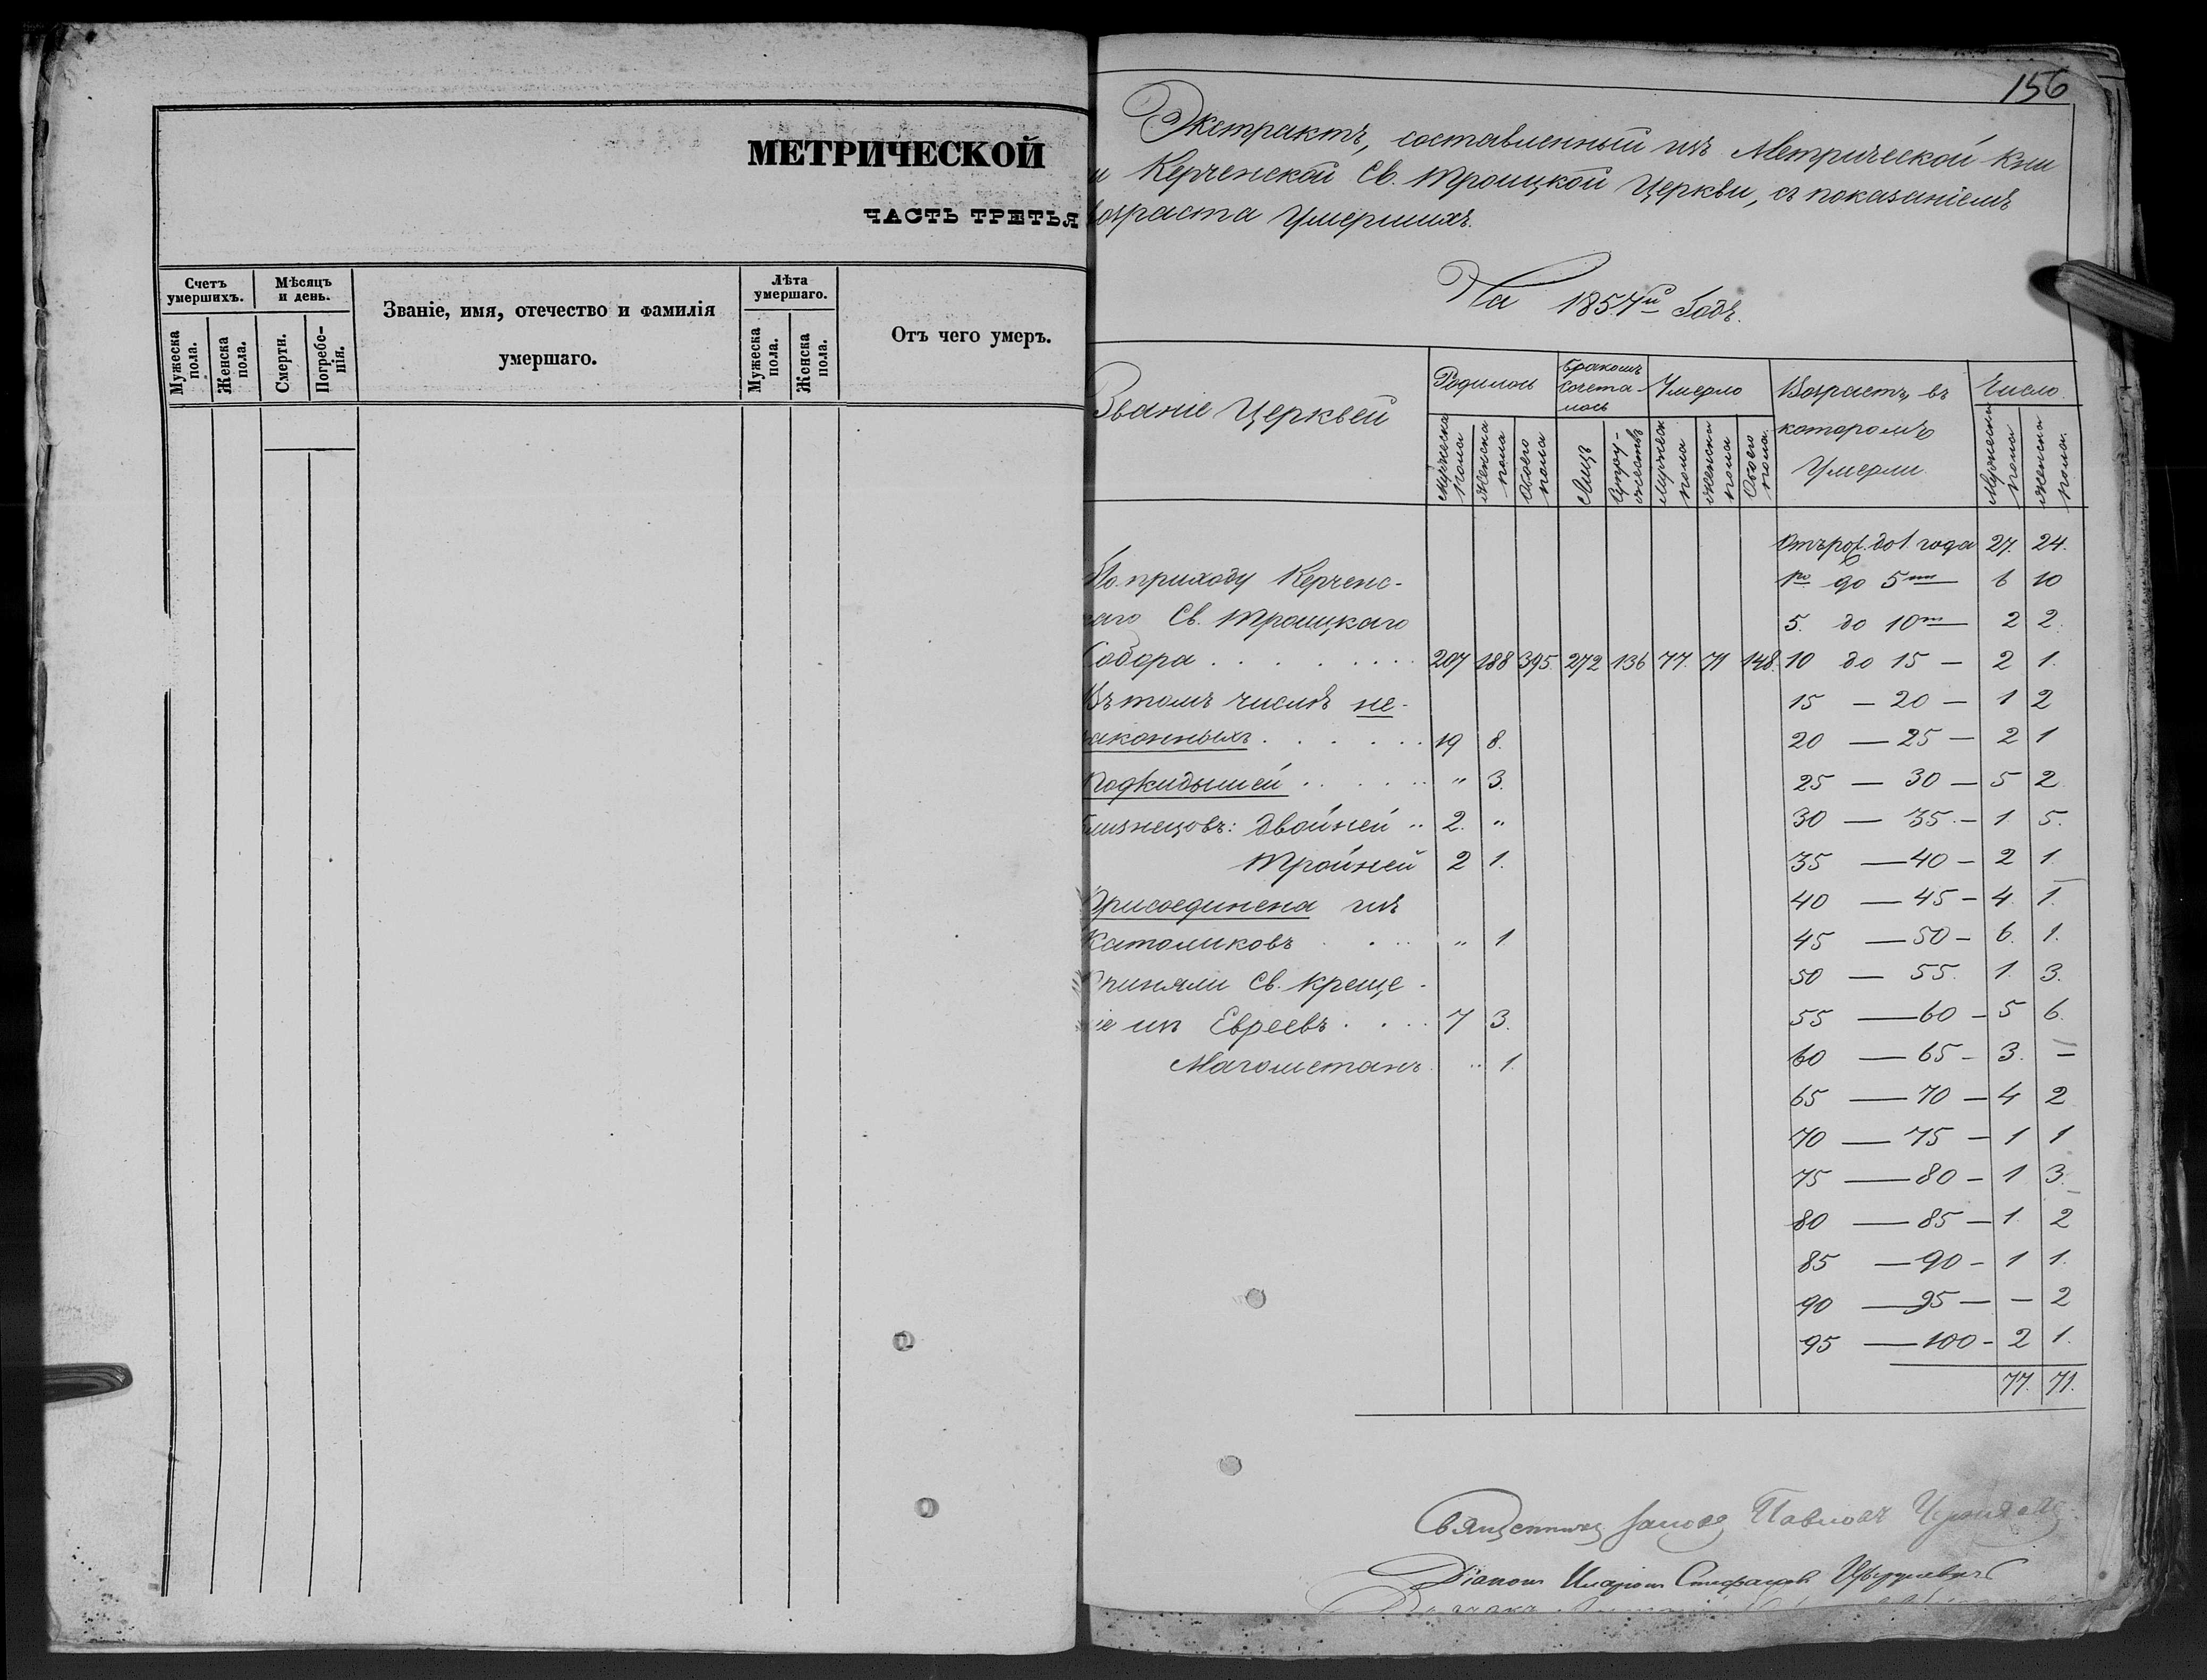 МЕТРИЧЕСКОЙ
ЧАСТЬ ТРЕТЬЯ
Счетъ умершихъ.
Мѣсяцъ и день.
Званіе, имя, отечество и фамилія
умершаго.
Лѣта умершаго.
Отъ чего умеръ.
Мужеска пола.
Женска пола.
Смерти.
Погребе-
нія.
Мужеска пола.
Женска пола.
156
Экстрактъ, составленный изъ Метрической Кни
и Керченской Св. Троицкой Церкви, съ показаніемъ
возраста Умершихъ.
На 1857й Годъ.
Званіе Церквей
Родилось
Бракомъ
сочета-
лось
Умерло
Возрастъ, въ
которомъ
Умерли
Число
Мужеска пола
Женска пола
Обоего пола
Лицъ
Супру-
жествъ
Мужеска пола
Женска пола
Обоего пола.
Мужеска пола
Женска пола.
Отъ рож. до 1. года 27. 24.
По приходу Керченс-
1го до 5ти — 6 10
каго Св. Троицкаго
5. до 10ти — 2 2.
Собора . . . . . . . . 207 188 395. 272 136 77. 71 148. 10 до 15 — 2 1.
Въ томъ числѣ не-
15 — 20 — 1 2
законныхъ . . . . . . 19 8.
20 — 25 — 2 1
Подкидышей . . . . . „ 3.
25 — 30 — 5 2
близнецовъ: двойней .. 2. „
30 — 35. — 1. 5.
Тройней 2 1.
35 — 40 — 2 1.
Присоединена изъ
40 — 45 — 4. 1.
Католиковъ . . . „ 1
45 — 50 — 6. 1.
Приняли Св. Креще-
50 — 55. 1. 3.
ніе изъ Евреевъ . . . . 7 3.
55 — 60 — 5 6.
Магометанъ. „ 1.
60 — 65 — 3. —
65 — 70 — 4 2
70 — 75 — 1 1
75 — 80 — 1 3.
80 — 85 — 1. 2
85 — 90 — 1 1.
90 — 95 — — 2
95 — 100 — 2 1.
77. 71.
Священникъ Павловъ
Діаконъ Иларіонъ Стефановъ